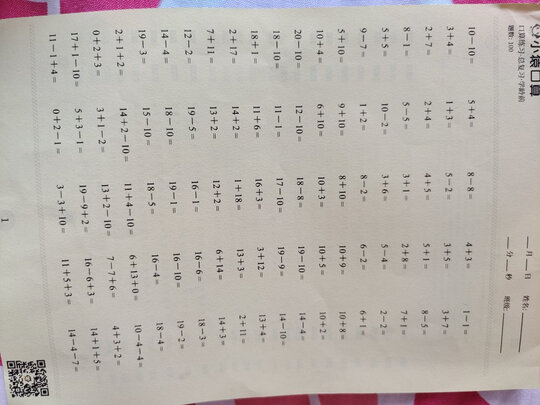 小猿口算
口算练习·总复习·学龄前
题数: 100
___月___日 姓名:______
___分___秒 班级:______
10-10= 5+4= 8-8= 4+3= 1-1=
3+4= 1+3= 5-2= 3+5= 3+7=
2+7= 2+4= 4+5= 5+1= 8-5=
8-1= 5-5= 3+1= 2+8= 7+1=
5+5= 10-2= 3+6= 5-4= 2-2=
9-7= 1+2= 8-2= 6-2= 6+1=
5+10= 9+10= 8+10= 10+9= 10+8=
10+4= 6+10= 10+3= 10+5= 10+2=
20-10= 12-10= 18-8= 19-10= 14-4=
18-10= 11-1= 17-10= 19-9= 14-10=
18+1= 11+6= 16+3= 3+12= 13+4=
2+17= 14+2= 1+18= 13+3= 2+11=
7+11= 13+2= 12+2= 6+14= 14+3=
12-2= 19-5= 16-1= 16-6= 18-3=
14-4= 18-10= 19-1= 16-10= 19-2=
19-3= 15-10= 18-5= 16-4= 18-4=
2+1+2= 14+2-10= 11+4-10= 6+13+0= 10-4-4=
0+2+3= 3+1-2= 13+2-10= 7-7+6= 4+3+2=
17+1-10= 5+3-1= 19-9+2= 16-6+3= 14+1+5=
11-1+4= 0+2-1= 3-3+10= 11+5+3= 14-4-7=
1